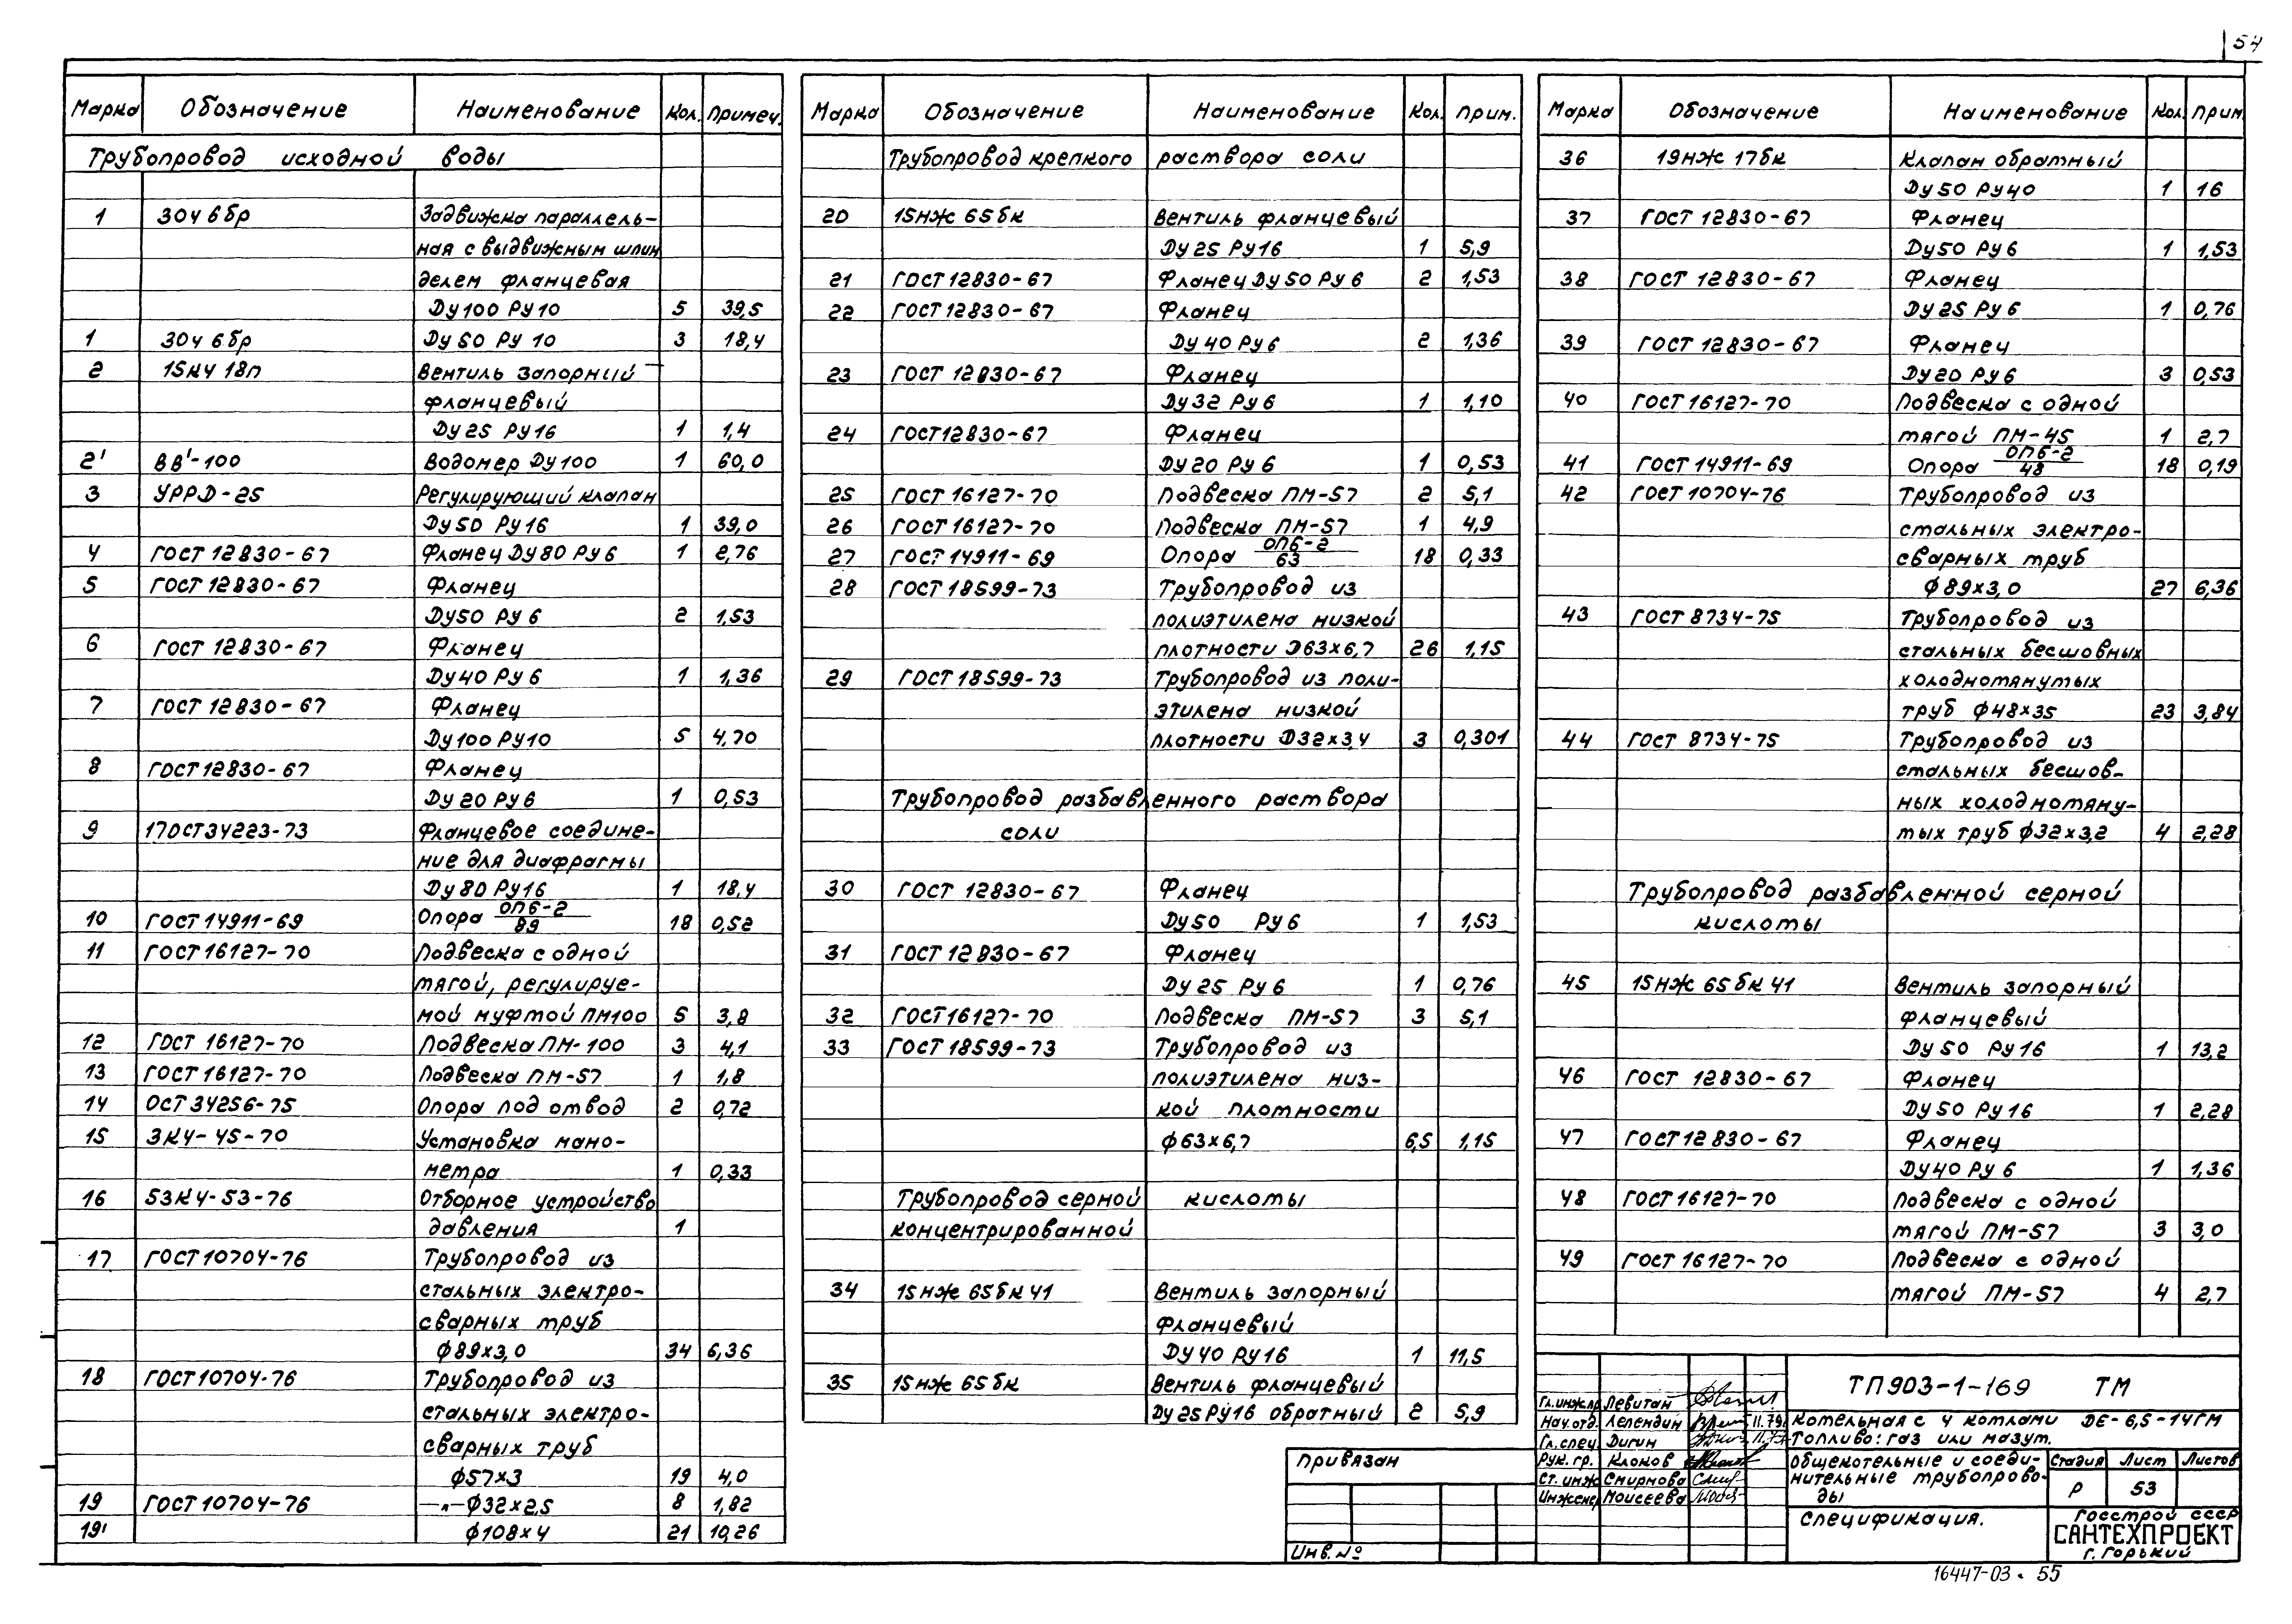 54
Марка Обозначение Наименование Кол. Примеч.
Трубопровод исходной воды
1 30ч 6бр Задвижка параллель-
ная с выдвижным шпин
делем фланцевая
Ду100 Ру10 5 39,5
1 30ч 6бр Ду50 Ру 10 3 18,4
2 15кч 18п Вентиль запорный
фланцевый
Ду25 Ру16 1 1,4
2' ВВ'-100 Водомер Ду100 1 60,0
3 УРРД-25 Регулирующий клапан
Ду50 Ру16 1 39,0
4 ГОСТ 12830-67 Фланец Ду80 Ру6 1 2,76
5 ГОСТ 12830-67 Фланец
Ду50 Ру 6 2 1,53
6 ГОСТ 12830-67 Фланец
Ду40 Ру 6 1 1,36
7 ГОСТ 12830-67 Фланец
Ду100 Ру10 5 4,70
8 ГОСТ 12830-67 Фланец
Ду 20 Ру 6 1 0,53
9 17ОСТ34223-73 Фланцевое соедине-
ние для диафрагмы
Ду 80 Ру16 1 18,4
10 ГОСТ 14911-69 Опора ОПБ-2/89 18 0,52
11 ГОСТ 16127-70 Подвеска с одной
тягой, регулируе-
мой муфтой ПМ100 5 3,8
12 ГОСТ 16127-70 Подвеска ПМ-100 3 4,1
13 ГОСТ 16127-70 Подвеска ПМ-57 1 1,8
14 ОСТ 34256-75 Опора под отвод 2 0,72
15 ЗК4-45-70 Установка мано-
метра 1 0,33
16 53К4-53-76 Отборное устройство
давления 1
17 ГОСТ 10704-76 Трубопровод из
стальных электро-
сварных труб
ф89х3,0 34 6,36
18 ГОСТ 10704-76 Трубопровод из
стальных электро-
сварных труб
ф57х3 19 4,0
19 ГОСТ 10704-76 —"—ф32х2,5 8 1,82
19' ф108х4 21 10,26
Марка Обозначение Наименование Кол. Прим.
Трубопровод крепкого раствора соли
20 15нж 65бк Вентиль фланцевый
Ду 25 Ру16 1 5,9
21 ГОСТ 12830-67 Фланец Ду 50 Ру 6 2 1,53
22 ГОСТ 12830-67 Фланец
Ду 40 Ру 6 2 1,36
23 ГОСТ 12830-67 Фланец
Ду32 Ру 6 1 1,10
24 ГОСТ12830-67 Фланец
Ду20 Ру 6 1 0,53
25 ГОСТ 16127-70 Подвеска ПМ-57 2 5,1
26 ГОСТ 16127-70 Подвеска ПМ-57 1 4,9
27 ГОСТ 14911-69 Опора ОПБ-2/63 18 0,33
28 ГОСТ 18599-73 Трубопровод из
полиэтилена низкой
плотности Ф63х6,7 26 1,15
29 ГОСТ 18599-73 Трубопровод из поли-
этилена низкой
плотности Ф32х3,4 3 0,301
Трубопровод разбавленного раствора
соли
30 ГОСТ 12830-67 Фланец
Ду50 Ру 6 1 1,53
31 ГОСТ 12830-67 Фланец
Ду 25 Ру 6 1 0,76
32 ГОСТ16127-70 Подвеска ПМ-57 3 5,1
33 ГОСТ 18599-73 Трубопровод из
полиэтилена низ-
кой плотности
ф63х6,7 6,5 1,15
Трубопровод серной кислоты
концентрированной
34 15нж 65бк 41 Вентиль запорный
фланцевый
Ду 40 Ру16 1 11,5
35 15нж 65бк Вентиль фланцевый
Ду 25 Ру16 обратный 2 5,9
Марка Обозначение Наименование Кол. Прим.
36 19нж 17бк Клапан обратный
Ду 50 Ру40 1 16
37 ГОСТ 12830-67 Фланец
Ду50 Ру 6 1 1,53
38 ГОСТ 12830-67 Фланец
Ду 25 Ру 6 1 0,76
39 ГОСТ 12830-67 Фланец
Ду20 Ру 6 3 0,53
40 ГОСТ 16127-70 Подвеска с одной
тягой ПМ-45 1 2,7
41 ГОСТ 14911-69 Опора ОПБ-2/48 18 0,19
42 ГОСТ 10704-76 Трубопровод из
стальных электро-
сварных труб
ф89х3,0 27 6,36
43 ГОСТ 8734-75 Трубопровод из
стальных бесшовных
холоднотянутых
труб ф48х35 23 3,84
44 ГОСТ 8734-75 Трубопровод из
стальных бесшов-
ных холоднотяну-
тых труб ф32х3,2 4 2,28
Трубопровод разбавленной серной
кислоты
45 15нж 65бк 41 Вентиль запорный
фланцевый
Ду 50 Ру16 1 13,2
46 ГОСТ 12830-67 Фланец
Ду 50 Ру16 1 2,28
47 ГОСТ 12830-67 Фланец
Ду40 Ру 6 1 1,36
48 ГОСТ 16127-70 Подвеска с одной
тягой ПМ-57 3 3,0
49 ГОСТ 16127-70 Подвеска с одной
тягой ПМ-57 4 2,7
Привязан
Инв.№
Гл.инж.пр Левитан
Нач.отд. Лепендин 11.79г
Гл.спец. Дигин
Рук. гр. Клоков
Ст. инж Смирнова
Инженер Моисеева
ТП903-1-169 ТМ
Котельная с 4 котлами ДЕ-6,5-14ГМ
Топливо: газ или мазут.
Общекотельные и соеди-
нительные трубопрово-
ды
Стадия Лист Листов
Р 53
Спецификация.
Госстрой СССР
САНТЕХПРОЕКТ
г. Горький
16447-03 . 55